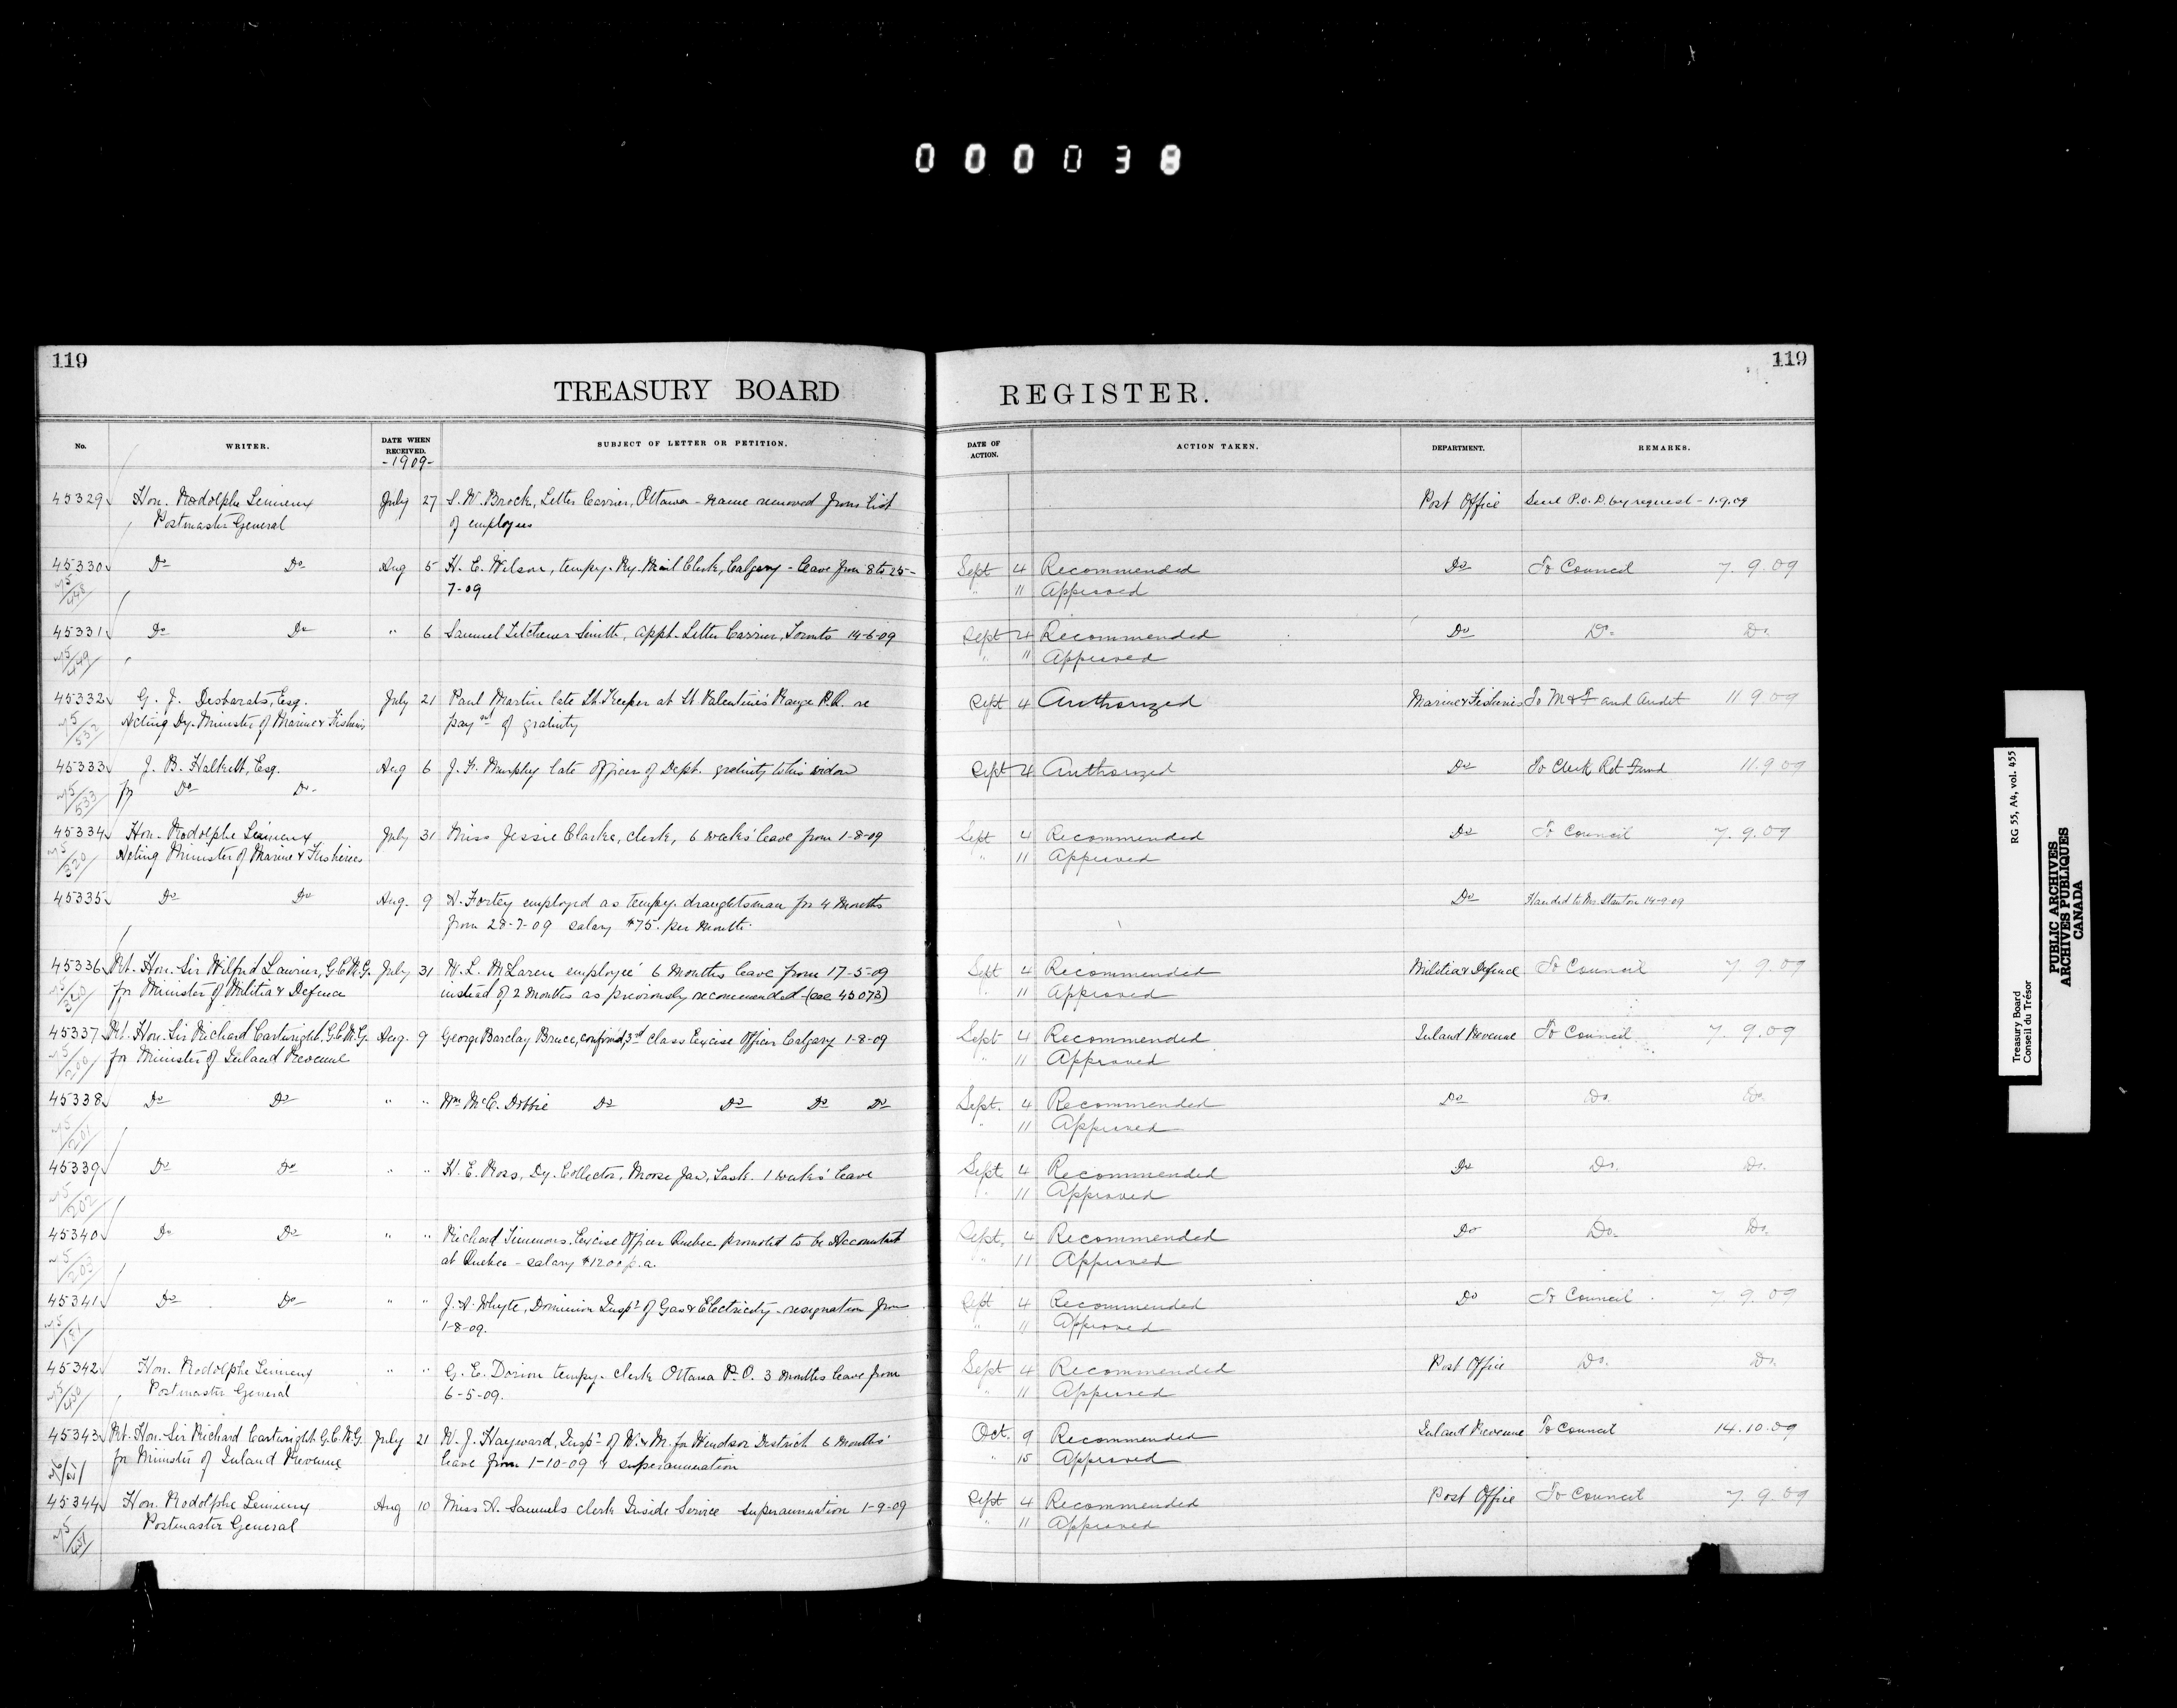 000038
119
TREASURY BOARD
REGISTER.
119
No.
WRITER.
DATE WHEN RECEIVED.
-1909-
SUBJECT OF LETTER OR PETITION.
DATE OF ACTION.
ACTION TAKEN.
DEPARTMENT.
REMARKS.
45329 Hon. Rodolphe Lemieux July 27 S. W. Brock, Letter Carrier, Ottawa - name removed from list Post Office Sent P.O.D. by request - 1.9.09
Postmaster General of employees
45330 Do Do Aug 5 H. E. Wilson, tempy. Ry. Mail Clerk, Calgary - leave from 8 to 25- Sept 4 Recommended Do To Council 7.9.09
7-09 " 11 Approved
45331 Do Do " 6 Samuel Litchener Smith, appt. Letter Carrier, Toronto 14-6-09 Sept 4 Recommended Do Do. Do.
" 11 Approved
45332 G. J. Desbarats, Esq. July 21 Paul Martin late Lt. Keeper at St Valentine's Range P.Q. re Sept 4 Authorized Marine & Fisheries To M & F and Audit 11 9 09
Acting Dy. Minister of Marine & Fisheries paymt of gratuity
45333 J. B. Halkett, Esq. Aug 6 J. F. Murphy late officer of Dept. gratuity to his widow Sept 4 Authorized Do To Clerk Ret Fund 11.9 09
for Do Do.
45334 Hon. Rodolphe Lemieux July 31 Miss Jessie Clarke, clerk, 6 weeks' leave from 1-8-09 Sept 4 Recommended Do To Council 7.9.09
Acting Minister of Marine & Fisheries " 11 Approved
45335 Do Do Aug. 9 A. Fortey employed as tempy. draughtsman for 4 months Do Handed to Mr. Stanton 14-9-09
from 28-7-09 salary $75. per month.
45336 Rt. Hon. Sir Wilfrid Laurier, G.C.M.G. July 31 W. L. McLaren employee 6 months leave from 17-5-09 Sept 4 Recommended Militia & Defence To Council 7 9.09
for Minister of Militia & Defence instead of 2 months as previously recommended (see 45073) " 11 Approved
45337 Rt. Hon. Sir Richard Cartwright. G.C.M.G. Aug. 9 George Barclay Bruce, confirmd, 3rd class Excise Officer Calgary 1-8-09 Sept 4 Recommended Inland Revenue To Council 7.9.09
for Minister of Inland Revenue " 11 Approved
45338 Do Do " " Wm McC. Dobbie Do Do Do Do Sept. 4 Recommended Do Do. Do.
" 11 Approved
45339 Do Do " " H. E. Ross, Dy. Collector, Moose Jaw, Sask. 1 weeks' leave Sept. 4 Recommended Do Do. Do.
" 11 Approved
45340 Do Do " " Richard Timmons. Excise Officer Quebec promoted to be Accountant Sept. 4 Recommended Do Do. Do.
at Quebec - salary $1200 p.a. " 11 Approved
45341 Do Do " " J. A. Whyte, Dominion Inspr of Gas & Electricity - resignation from Sept 4 Recommended Do To Council 7.9.09
1-8-09. " 11 Approved
45342 Hon. Rodolphe Lemieux " " G. E. Dorion tempy. clerk Ottawa P.O. 3 months leave from Sept 4 Recommended Post Office Do. Do.
Postmaster General 6-5-09. " 11 Approved
45343 Rt. Hon. Sir Richard Cartwright G.C.M.G. July 21 W. J. Hayward, Inspr of W. & M. for Windsor District 6 months' Oct. 9 Recommended Inland Revenue To Council 14.10.09
for Minister of Inland Revenue leave from 1-10-09 & superannuation " 15 Approved
45344 Hon. Rodolphe Lemieux Aug 10 Miss A. Samuels clerk Inside Service superannuation 1-9-09 Sept 4 Recommended Post Office To Council 7.9.09
Postmaster General " 11 Approved
Treasury Board RG 55, A4, vol. 455
Conseil du Trésor
PUBLIC ARCHIVES
ARCHIVES PUBLIQUES
CANADA